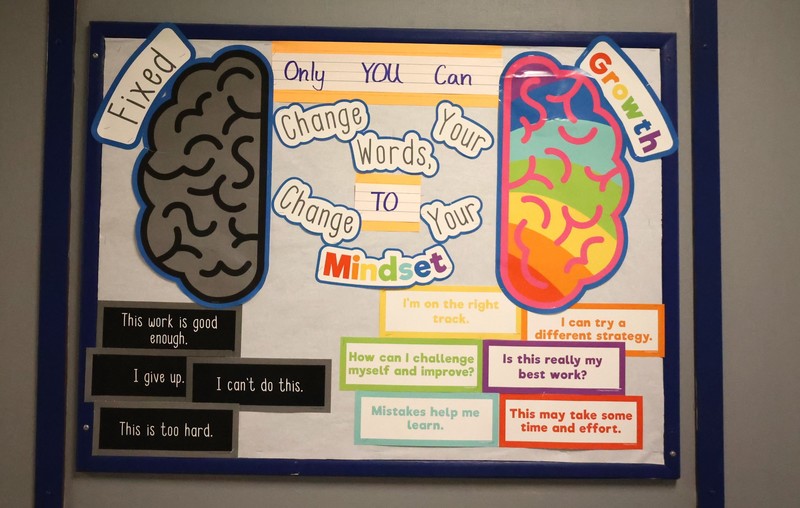 Fixed
Growth
Only YOU Can
Change Your
Words,
TO
Change Your
Mindset
This work is good
enough.
I give up.
I can't do this.
This is too hard.
I'm on the right
track.
I can try a
different strategy.
How can I challenge
myself and improve?
Is this really my
best work?
Mistakes help me
learn.
This may take some
time and effort.